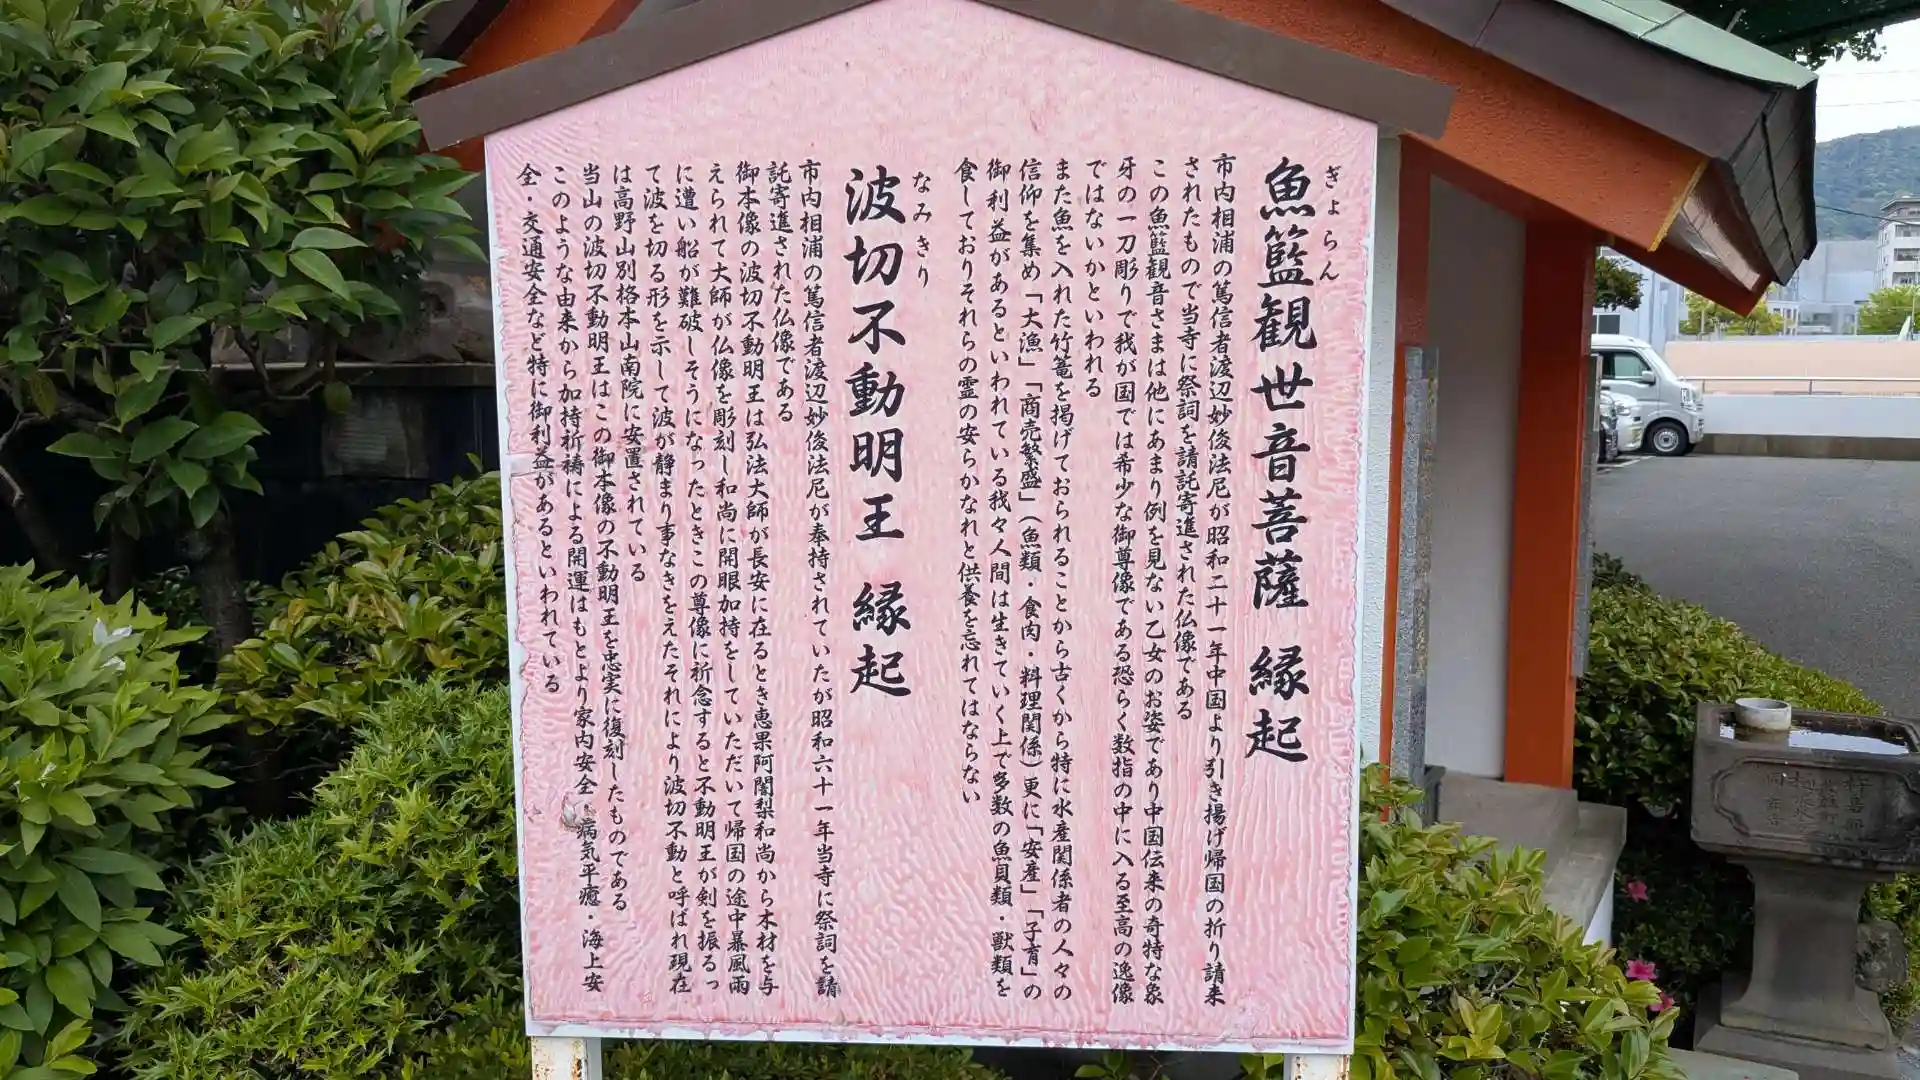 ぎょらん
魚籃観世音菩薩 縁起
市内相浦の篤信者渡辺妙俊法尼が昭和二十一年中国より引き揚げ帰国の折り請来
されたもので当寺に祭祠を請託寄進された仏像である
この魚籃観音さまは他にあまり例を見ない乙女のお姿であり中国伝来の奇特な象
牙の一刀彫りで我が国では希少な御尊像である恐らく数指の中に入る至高の逸像
ではないかといわれる
また魚を入れた竹篭を掲げておられることから古くから特に水産関係者の人々の
信仰を集め「大漁」「商売繁盛」(魚類・食肉・料理関係)更に「安産」「子育」の
御利益があるといわれている我々人間は生きていく上で多数の魚貝類・獣類を
食しておりそれらの霊の安らかなれと供養を忘れてはならない
なみきり
波切不動明王 縁起
市内相浦の篤信者渡辺妙俊法尼が奉持されていたが昭和六十一年当寺に祭祠を請
託寄進された仏像である
御本像の波切不動明王は弘法大師が長安に在るとき恵果阿闍梨和尚から木材を与
えられて大師が仏像を彫刻し和尚に開眼加持をしていただいて帰国の途中暴風雨
に遭い船が難破しそうになったときこの尊像に祈念すると不動明王が剣を振るっ
て波を切る形を示して波が静まり事なきをえたそれにより波切不動と呼ばれ現在
は高野山別格本山南院に安置されている
当山の波切不動明王はこの御本像の不動明王を忠実に復刻したものである
このような由来から加持祈祷による開運はもとより家内安全・病気平癒・海上安
全・交通安全など特に御利益があるといわれている